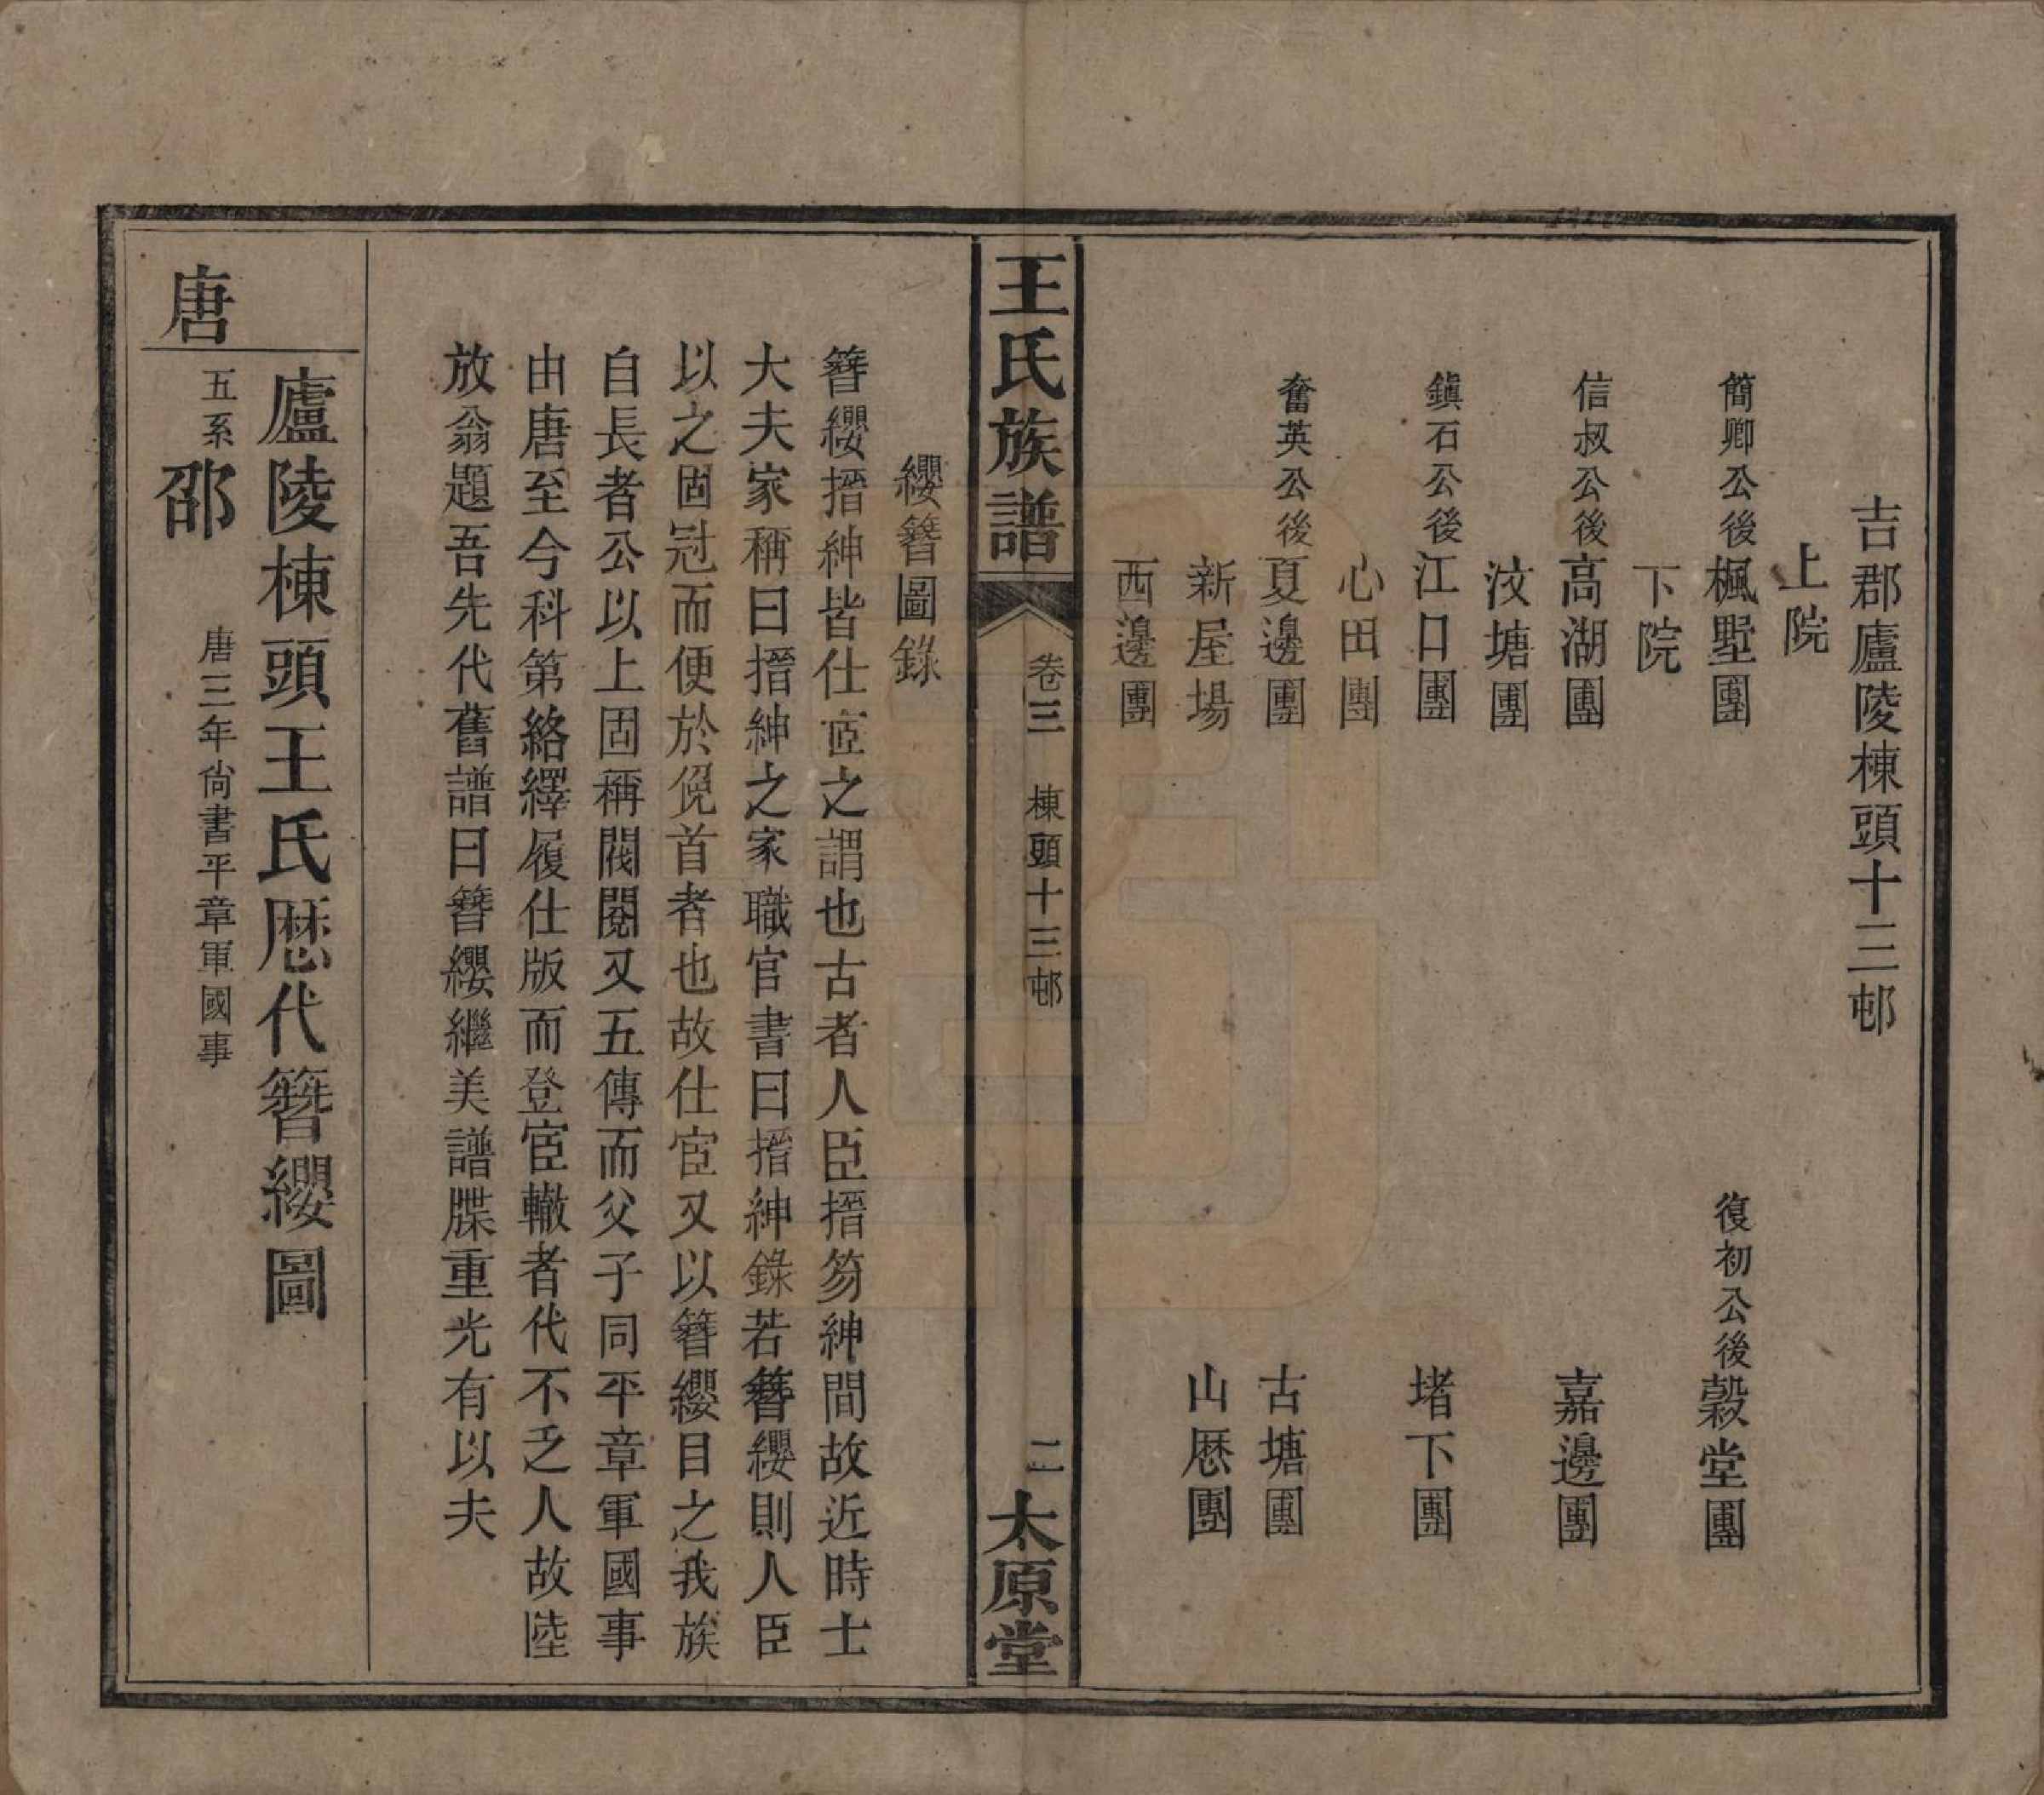 吉郡廬陵棟頭十三邨
上院
簡卿公後楓墅團
復初公後穀堂團
下院
信叔公後高湖團
嘉邊團
汶塘團
鎮石公後江口團
堵下團
心田團
奮英公後夏邊團
古塘團
新屋場
山厯團
西邊團
王氏族譜
卷三
棟頭十三邨
二
太原堂
纓簪圖錄
簪纓搢紳皆仕宦之謂也古者人臣搢笏紳間故近時士
大夫家稱曰搢紳之家職官書曰搢紳錄若簪纓則人臣
以之固冠而便於俛首者也故仕宦又以簪纓目之我族
自長者公以上固稱閥閱又五傳而父子同平章軍國事
由唐至今科第絡繹履仕版而登宦轍者代不乏人故陸
放翁題吾先代舊譜曰簪纓繼美譜牒重光有以夫
廬陵棟頭王氏厯代簪纓圖
唐
五系
邵
唐三年尙書平章軍國事